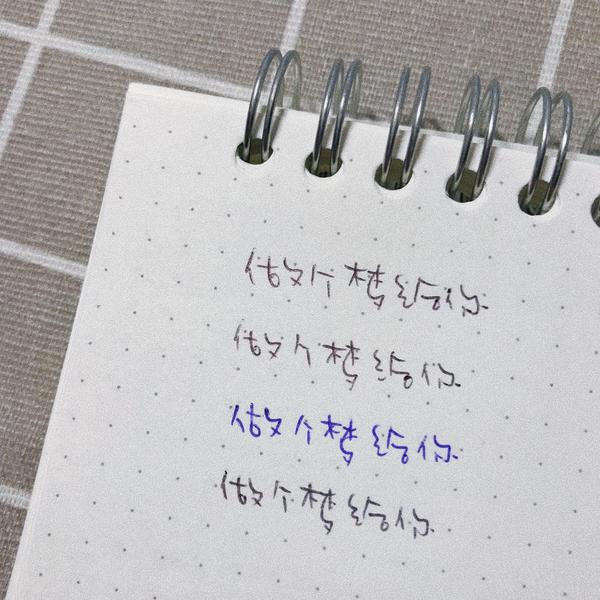 做个梦给你
做个梦给你
做个梦给你
做个梦给你